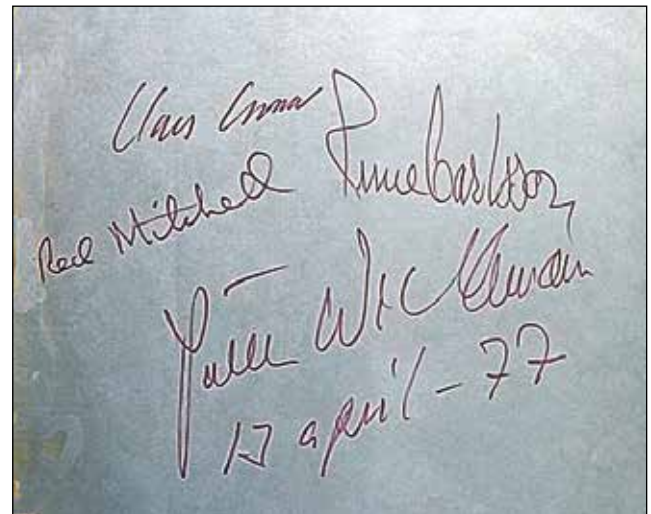 Claes Crona
Rune Carlsson
Red Mitchell
Putte Wickman
april -77